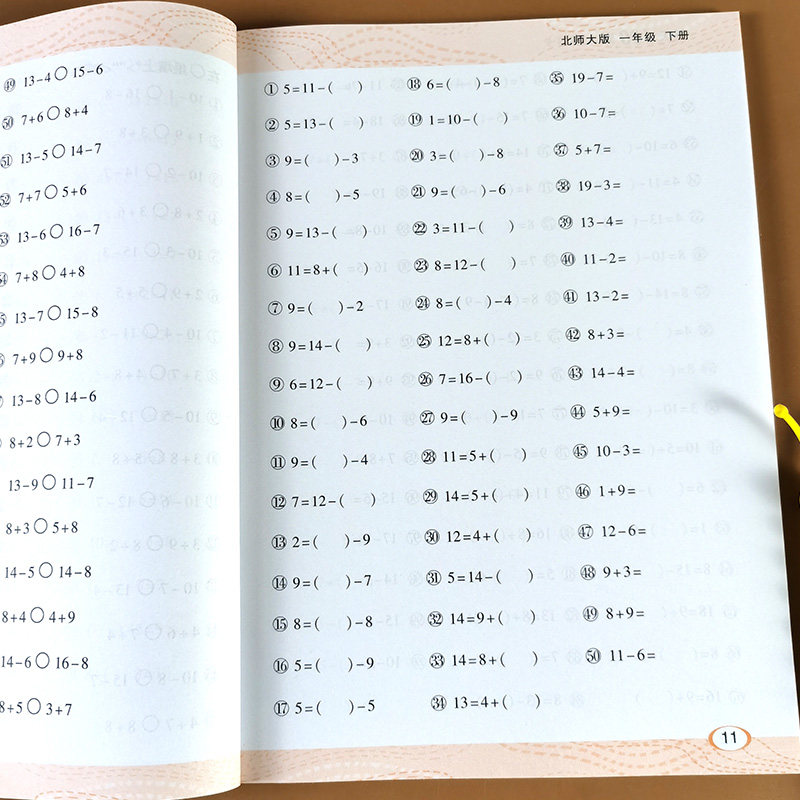 ㊾ 13-4○15-6
㊿ 7+6○8+4
13-5○14-7
7+7○5+6
13-6○16-7
7+8○4+8
13-7○15-8
7+9○9+8
13-8○14-6
8+2○7+3
13-9○11-7
8+3○5+8
14-5○14-8
8+4○4+9
14-6○16-8
8+5○3+7
北师大版 一年级 下册
① 5=11-( )
② 5=13-( )
③ 9=( )-3
④ 8=( )-5
⑤ 9=13-( )
⑥ 11=8+( )
⑦ 9=( )-2
⑧ 9=14-( )
⑨ 6=12-( )
⑩ 8=( )-6
⑪ 9=( )-4
⑫ 7=12-( )
⑬ 2=( )-9
⑭ 9=( )-7
⑮ 8=( )-8
⑯ 5=( )-9
⑰ 5=( )-5
⑱ 6=( )-8
⑲ 1=10-( )
⑳ 3=( )-8
㉑ 9=( )-6
㉒ 3=11-( )
㉓ 8=12-( )
㉔ 8=( )-4
㉕ 12=8+( )
㉖ 7=16-( )
㉗ 9=( )-9
㉘ 11=5+( )
㉙ 14=5+( )
㉚ 12=4+( )
㉛ 5=14-( )
㉜ 14=9+( )
㉝ 14=8+( )
㉞ 13=4+( )
㉟ 19-7=
㊱ 10-7=
㊲ 5+7=
㊳ 19-3=
㊴ 13-4=
㊵ 11-2=
㊶ 13-2=
㊷ 8+3=
㊸ 14-4=
㊹ 5+9=
㊺ 10-3=
㊻ 1+9=
㊼ 12-6=
㊽ 9+3=
㊾ 8+9=
㊿ 11-6=
11